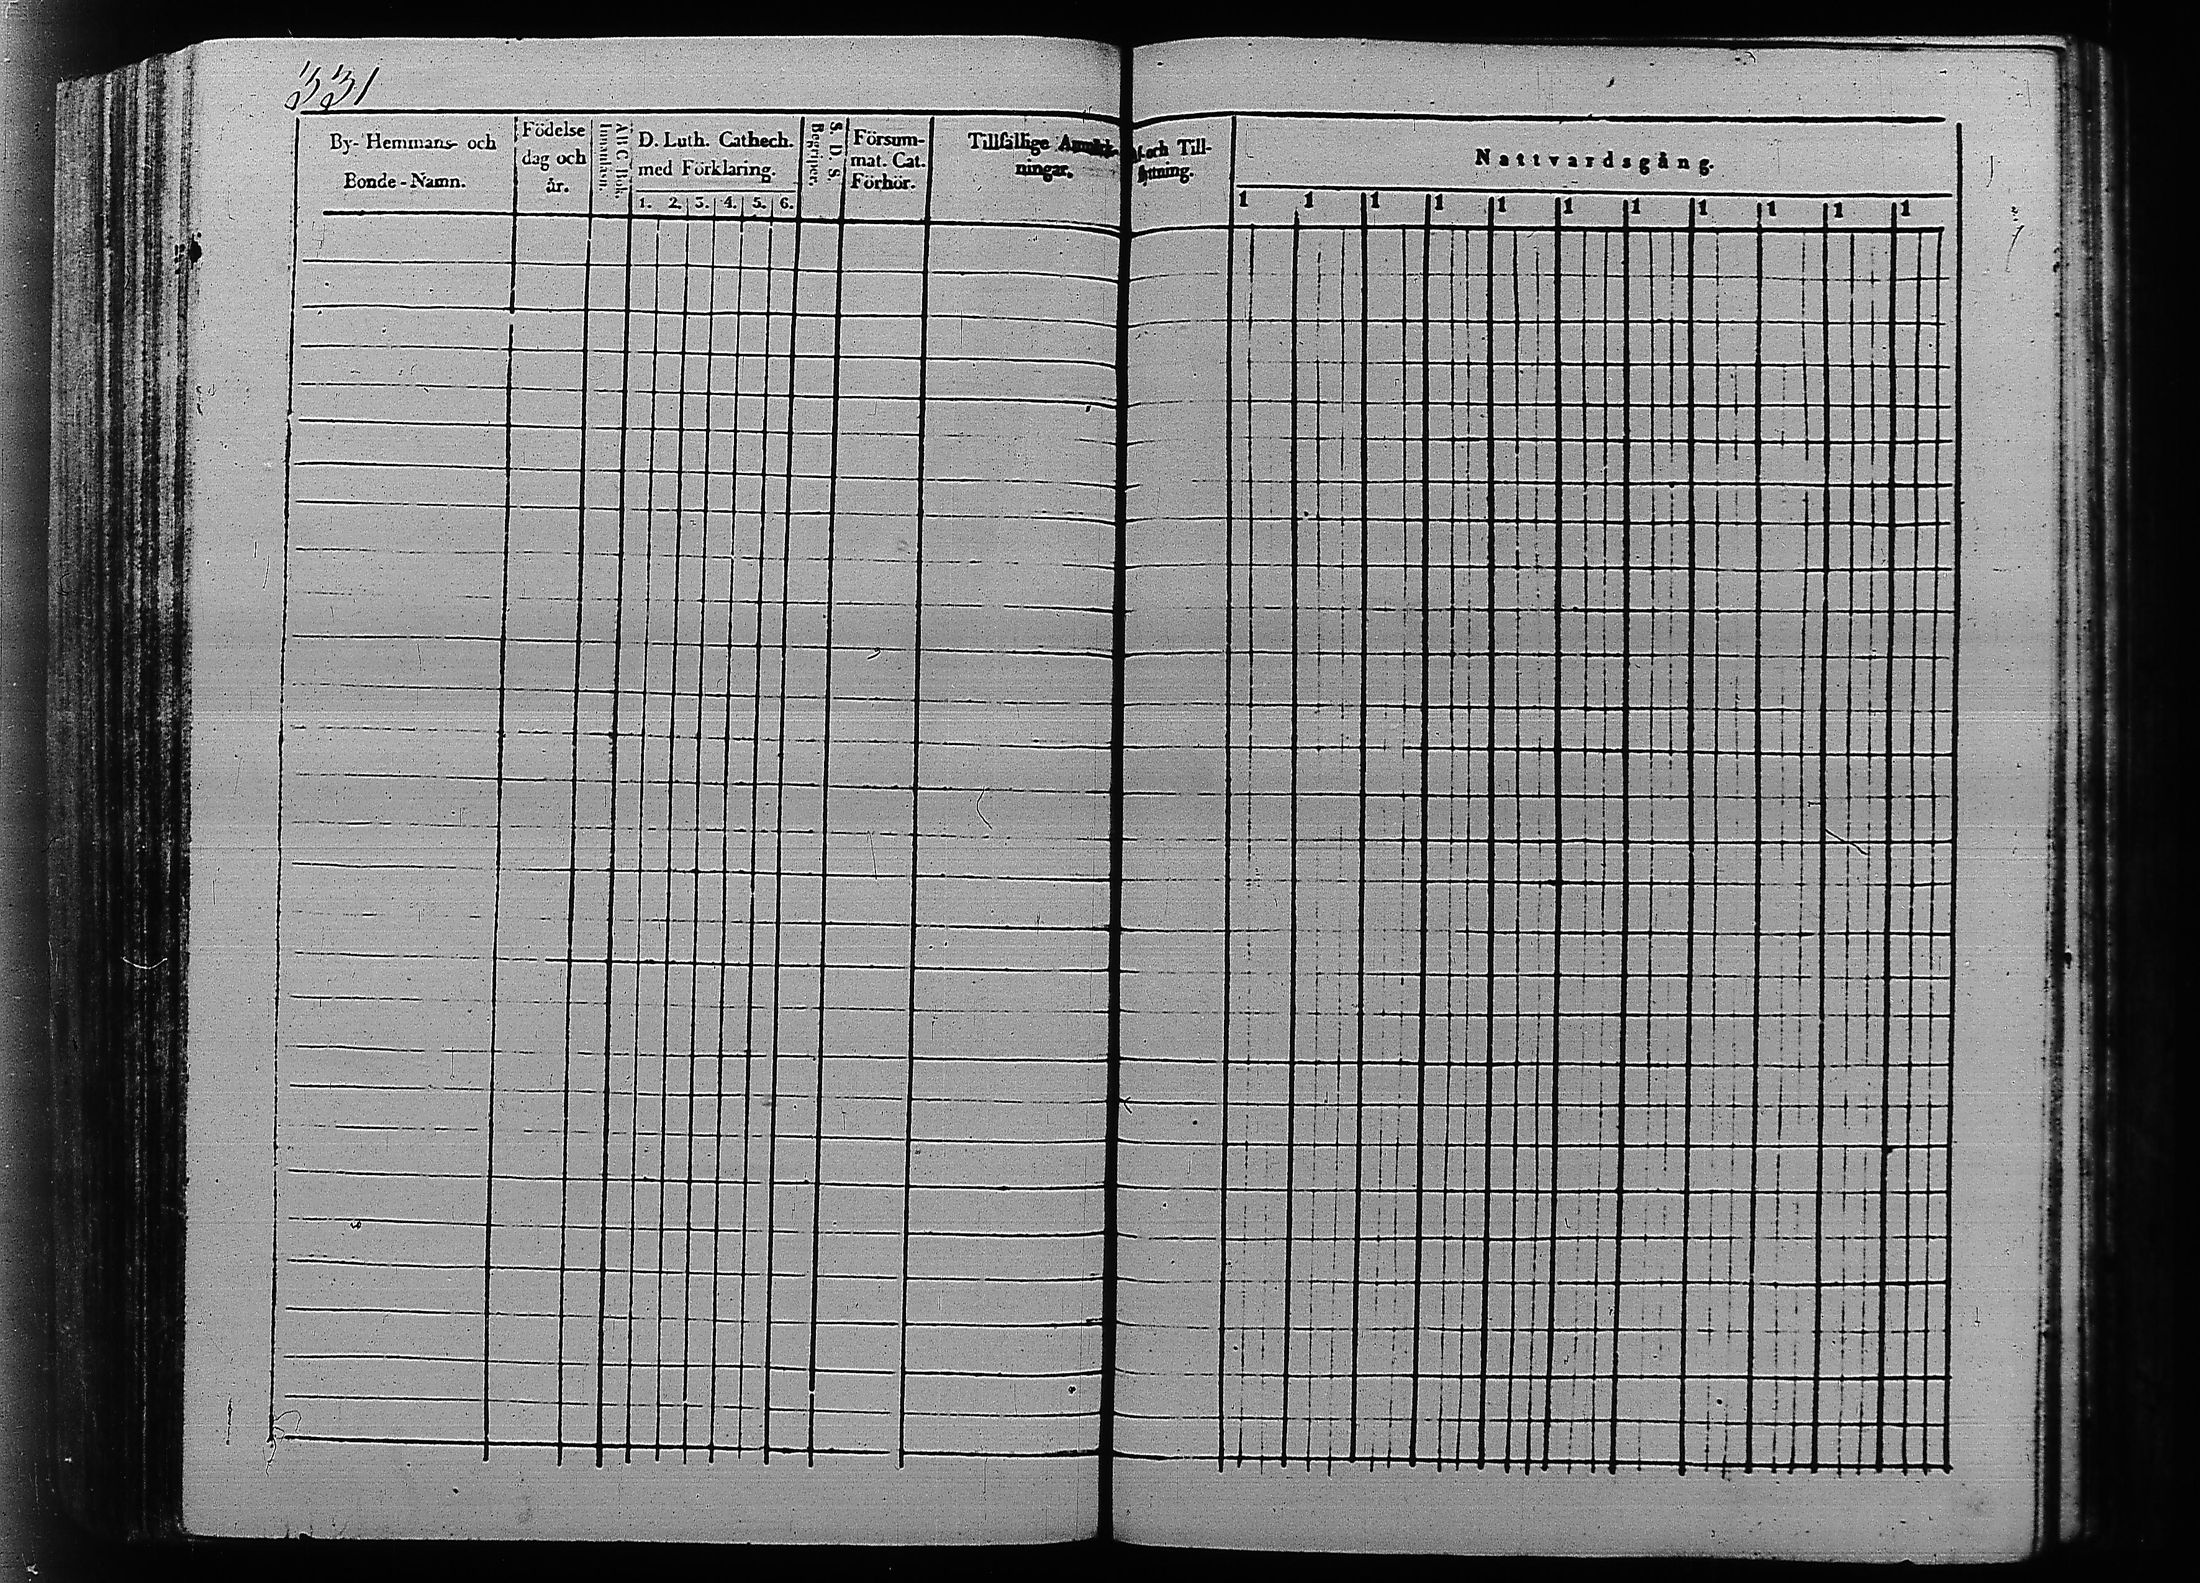 331
By- Hemmans- och
Bonde-Namn.
Födelse
dag och
år.
ABC Bok.
Innanläsn.
D. Luth. Cathech.
med Förklaring.
1. 2. 3. 4. 5. 6.
S. D. S.
Begriper.
Försum-
mat. Cat.
Förhör.
Tillfällige Anmärk-
ningar.
och Till-
flyttning.
Nattvardsgång.
1 1 1 1 1 1 1 1 1 1 1